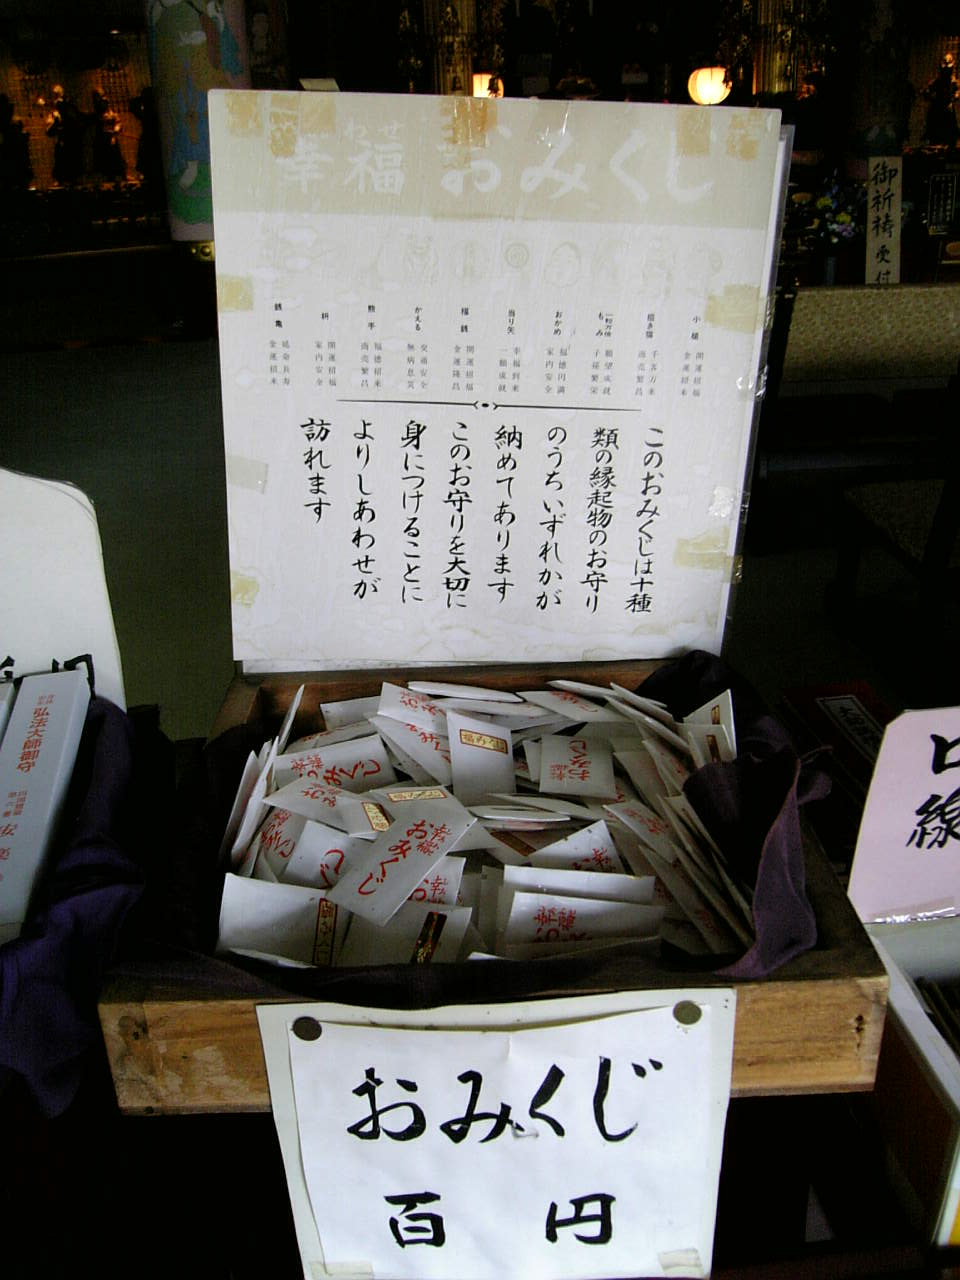 幸福 おみくじ
わせ
小槌
開運招福
金運招来
招き猫
千客万来
商売繁昌
一粒万倍
もみ
願望成就
子孫繁栄
おかめ
福徳円満
家内安全
当り矢
幸福到来
一願成就
福銭
開運招福
金運隆昌
かえる
交通安全
無病息災
熊手
福徳招来
商売繁昌
枡
開運招福
家内安全
銭亀
延命長寿
金運招来
このおみくじは十種
類の縁起物のお守り
のうちいずれかが
納めてあります
このお守りを大切に
身につけることに
よりしあわせが
訪れます
御祈祷受付
弘法大師御守
幸福
おみくじ
おみくじ
おみくじ
おみくじ
百円
線